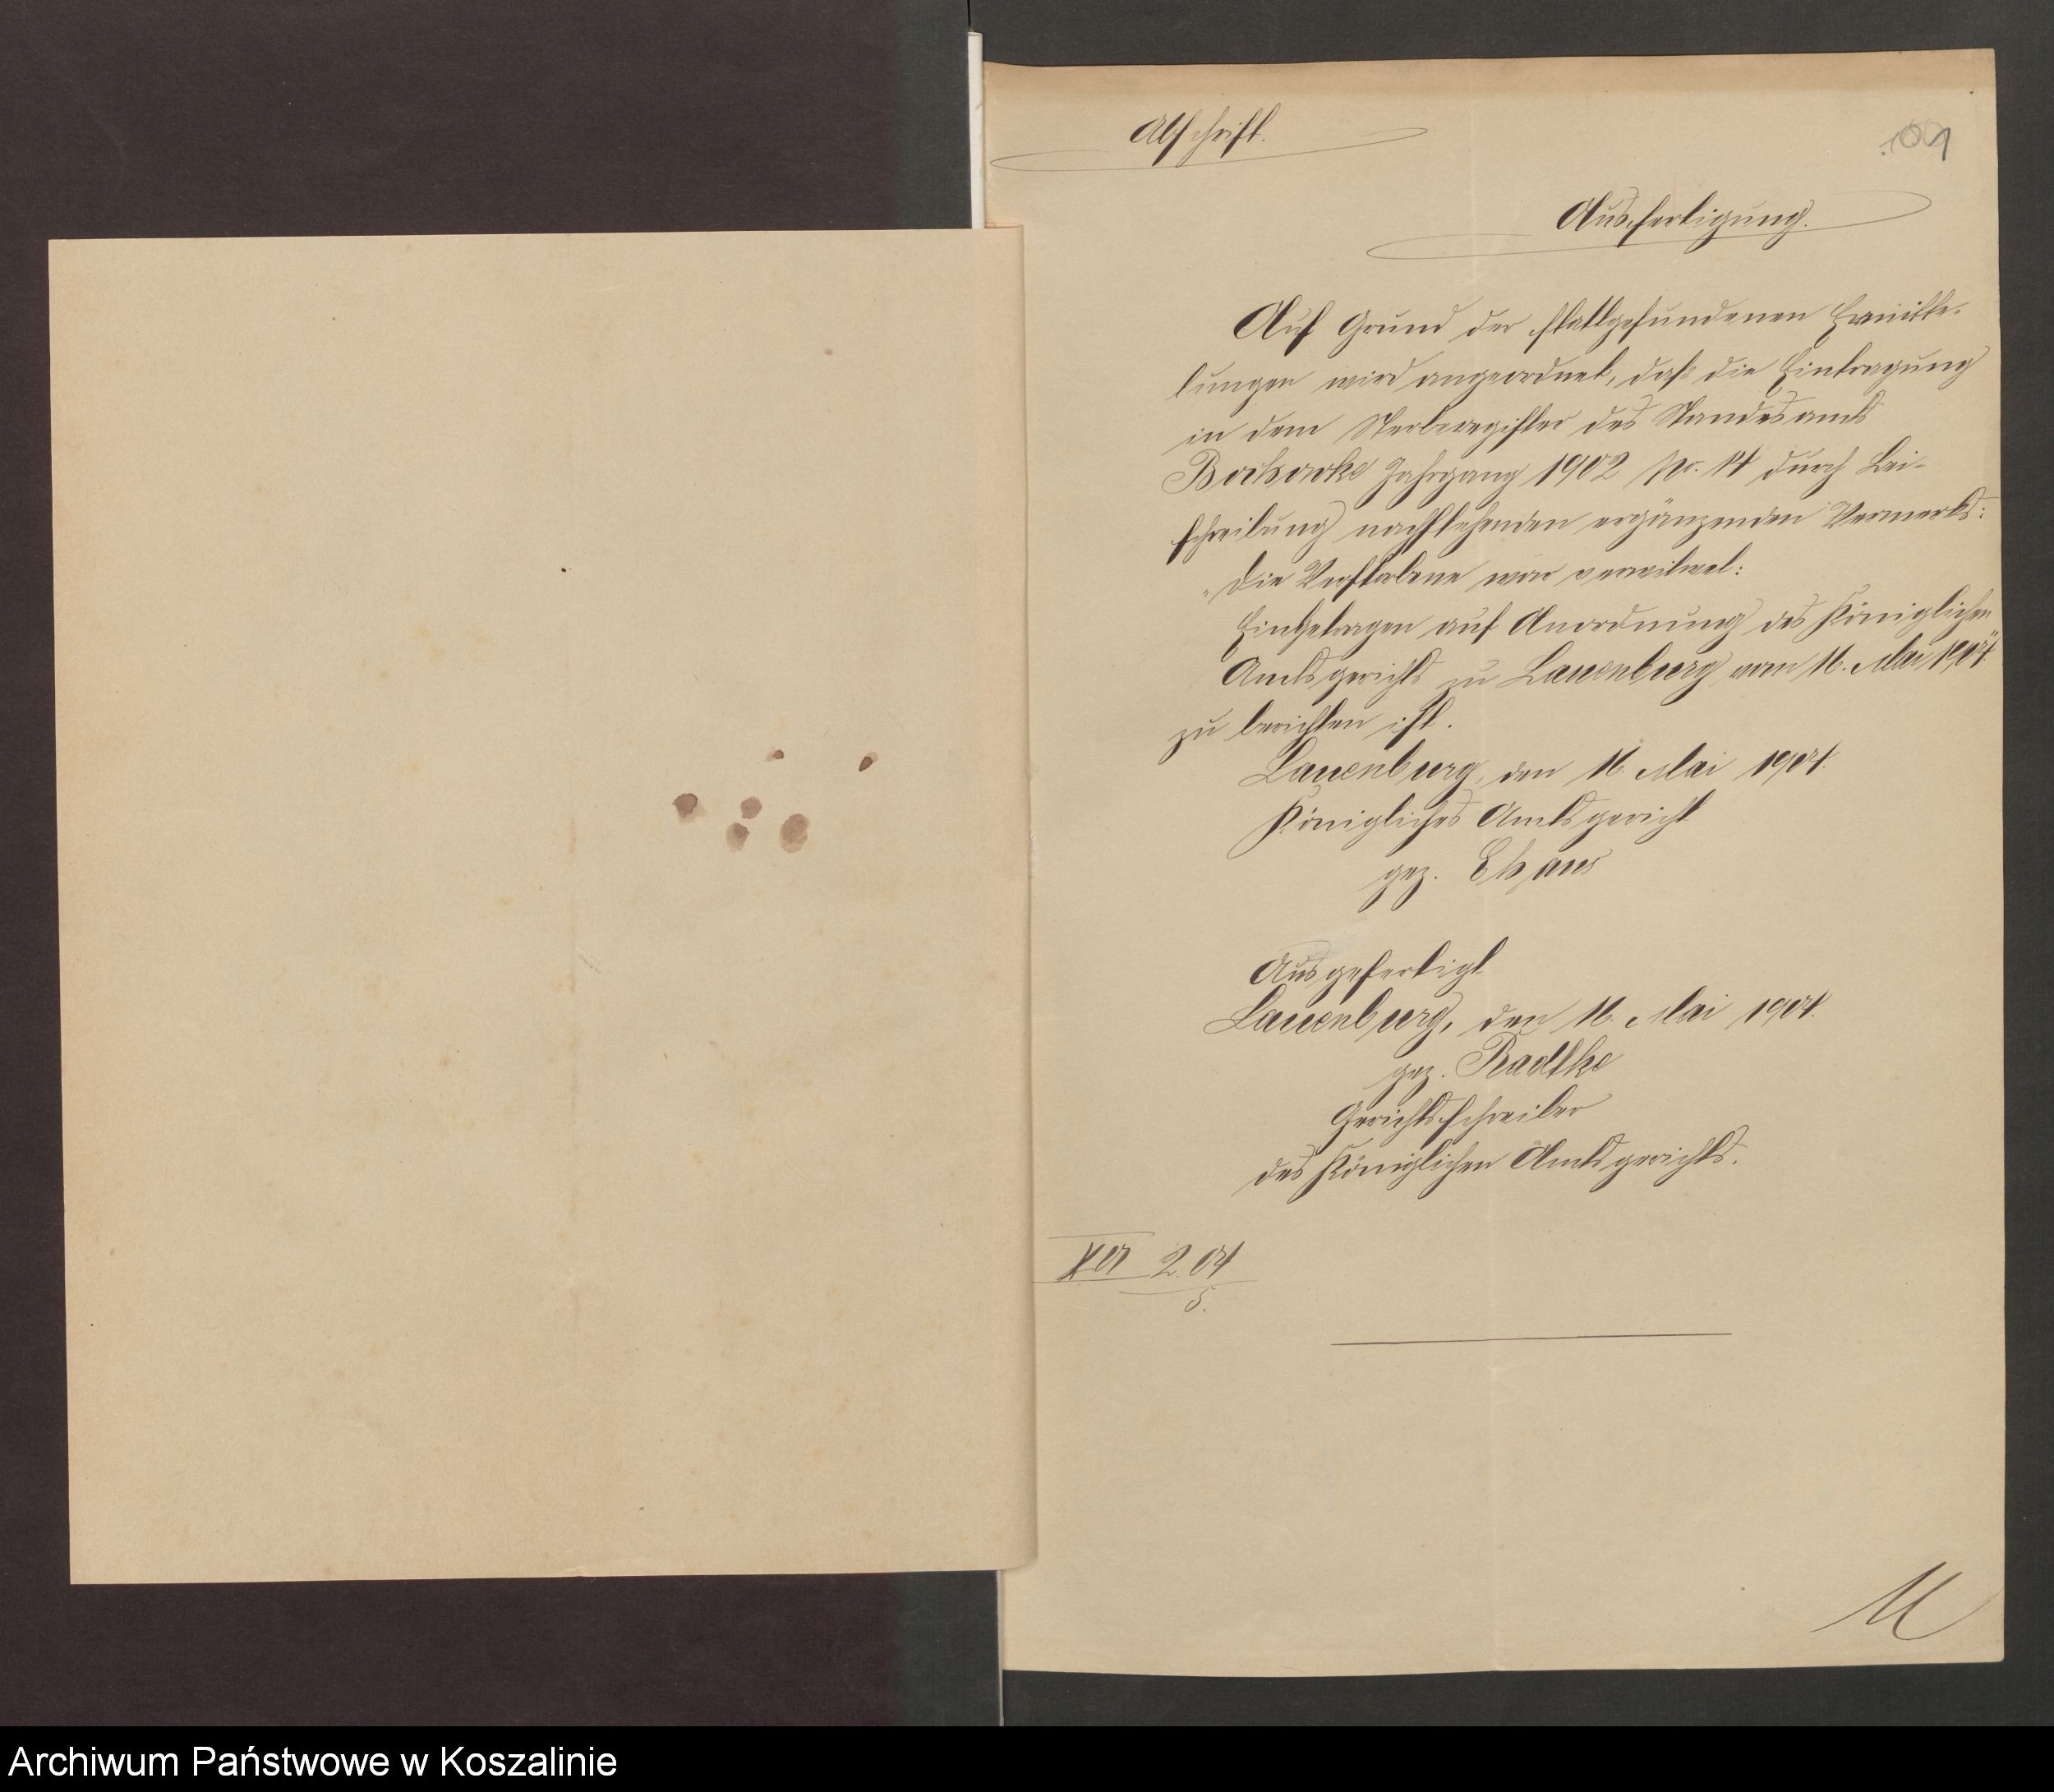 Abschrift.
Ausfertigung.
Auf Grund der stattgefundenen Ermitte-
lungen wird angeordnet, daß die Eintragung
in dem Sterberegister des Standesamts
Jahrgang 1902 No. 14 durch Bei-
schreibung nachstehenden ergänzenden Vermerks:
"Die Verstorbene war verwitwet:
Eingetragen auf Anordnung des Königlichen
Amtsgerichts zu Lauenburg vom 16. Mai 1904."
zu berichten ist.
Lauenburg, den 16. Mai 1904.
Königliches Amtsgericht
gez.
Ausgefertigt
Lauenburg, den 16. Mai 1904.
gez. Radtke
Gerichtsschreiber
des Königlichen Amtsgerichts.
2. 04
5.
Archiwum Państwowe w Koszalinie